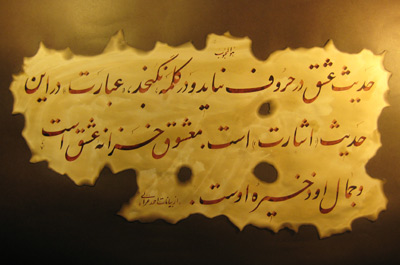 حدیث عشق در حروف نیاید و در کلمه نگنجد، «عبارت» در این
حدیث «اشارت» است. معشوق خزانه عشق است
و جمال او ذخیره اوست.